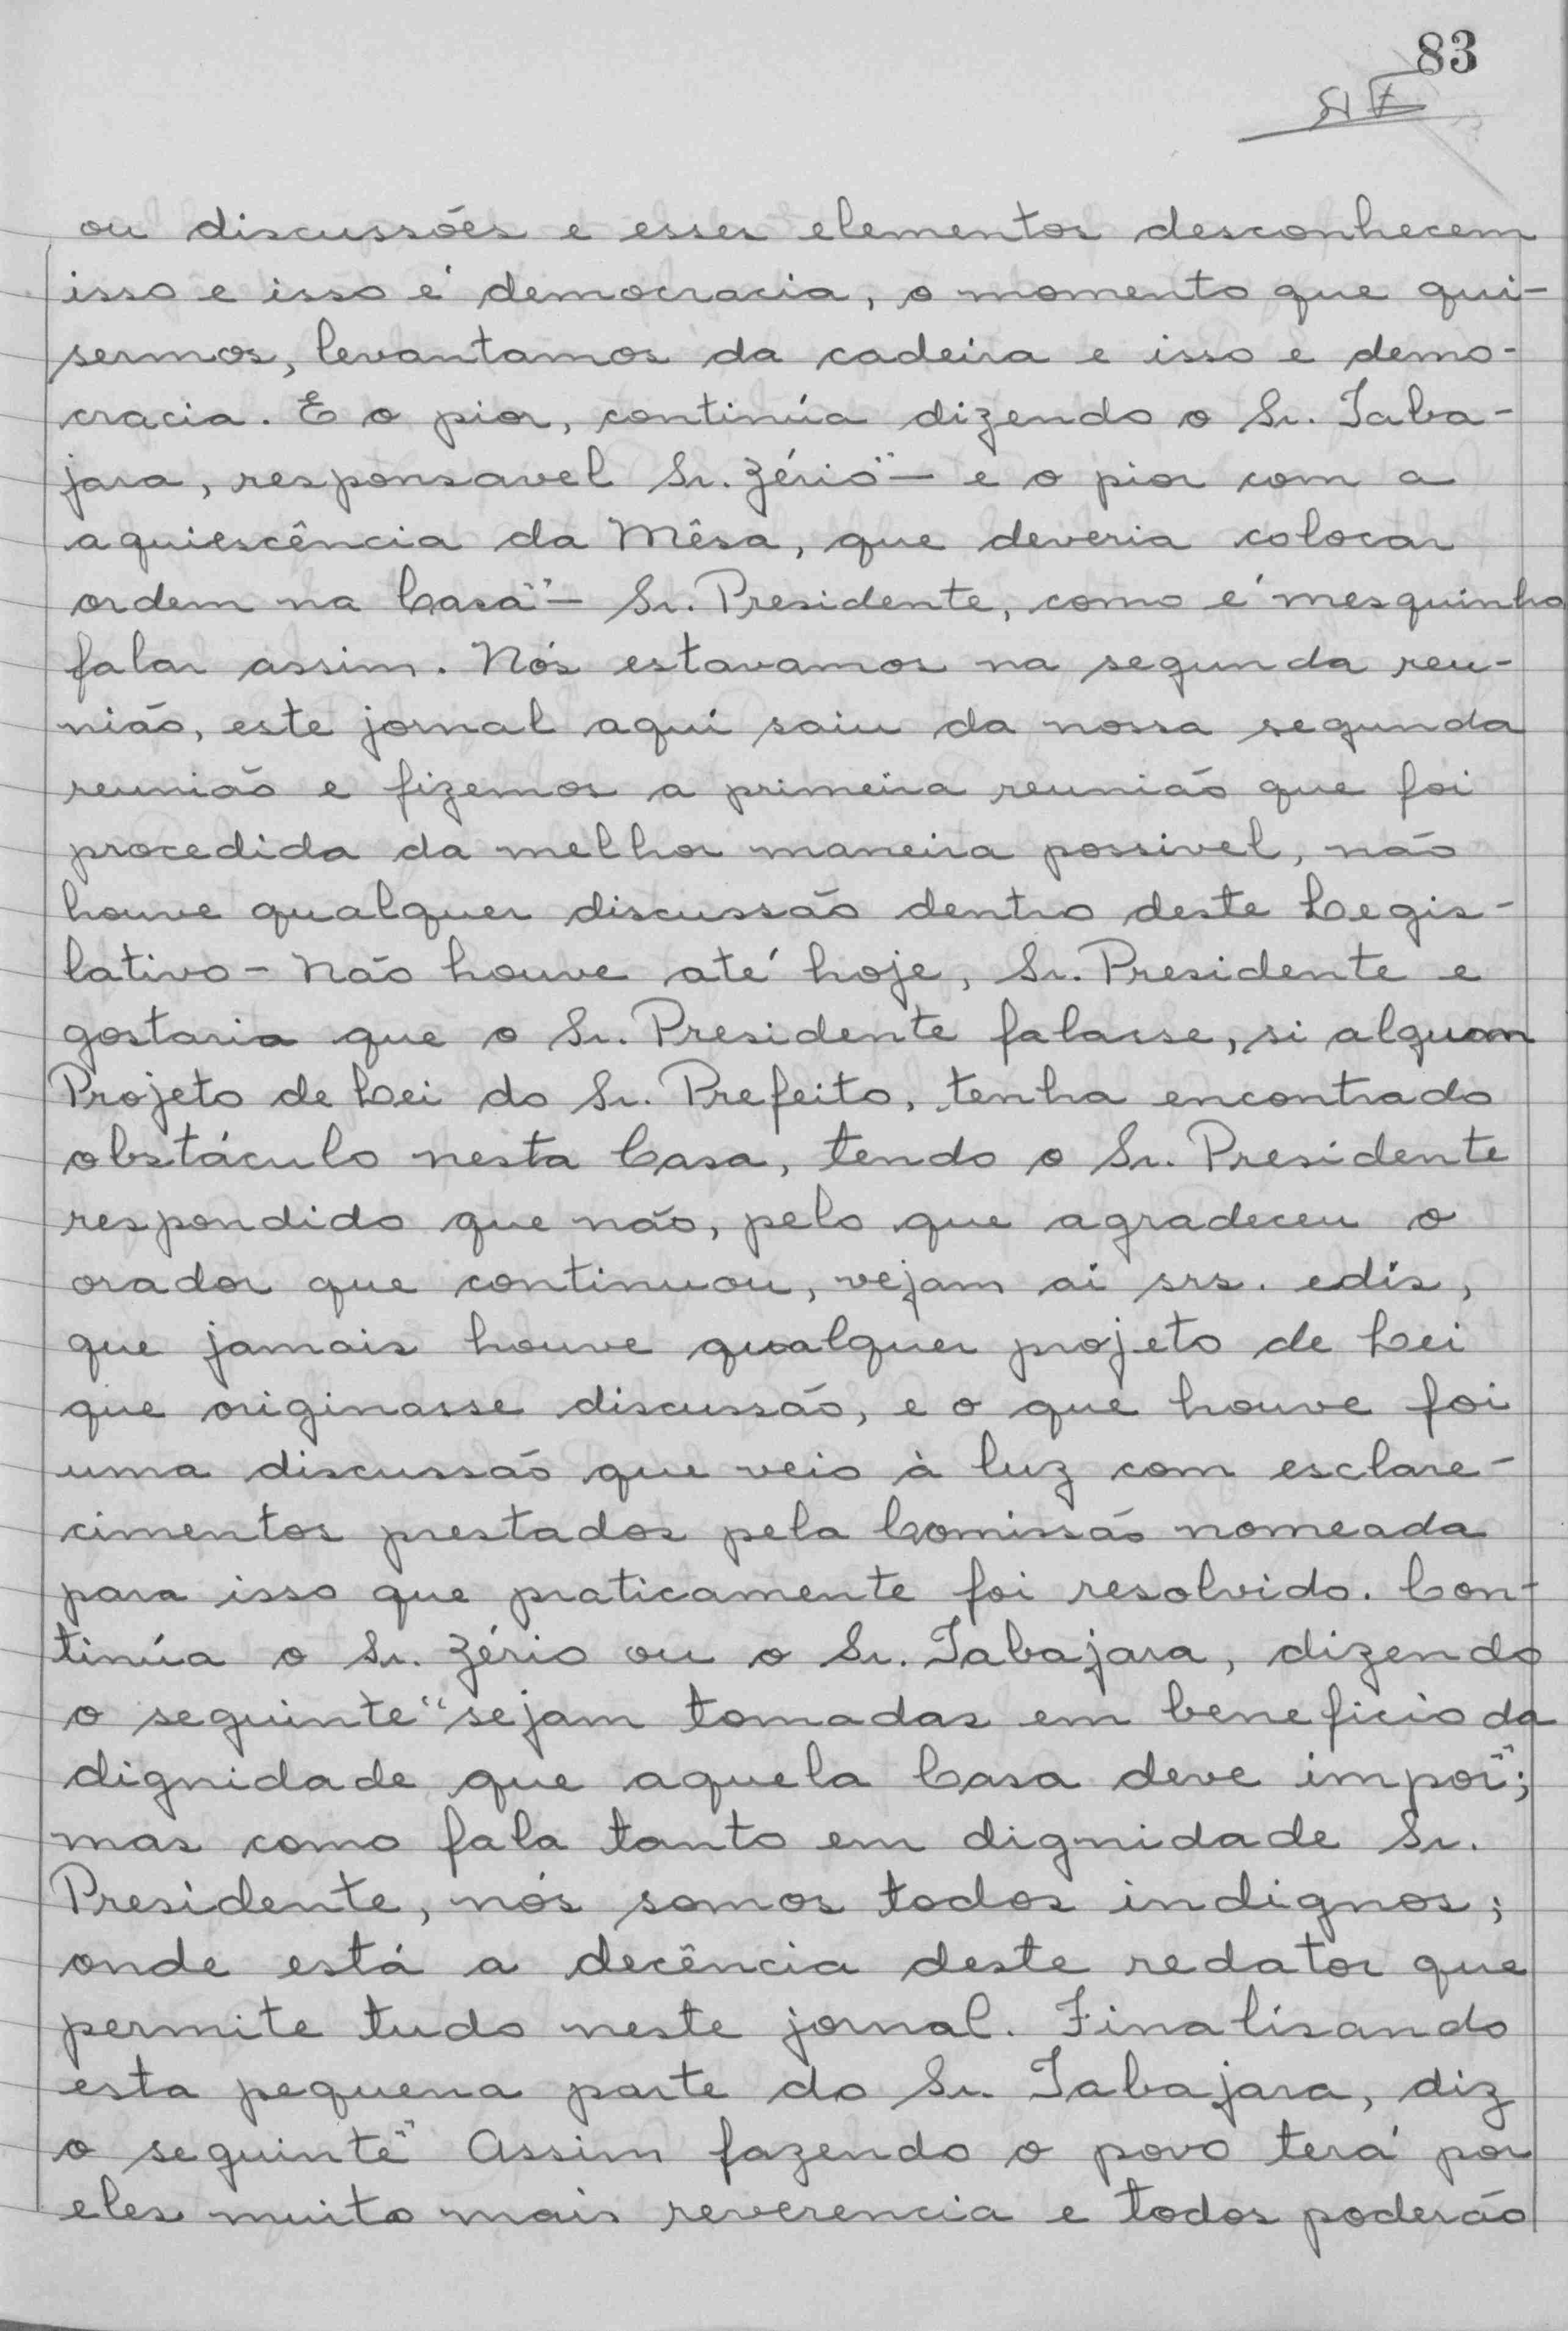 83
ou discussões e esses elementos desconhecem
isso e isso é democracia, o momento que qui-
sermos, levantamos da cadeira e isso e demo-
cracia. E o pior, continúa dizendo o Sr. Taba-
jara, responsavel Sr. Zério"- e o pior com a
aquiescência da Mêsa, que deveria colocar
ordem na Casa"- Sr. Presidente, como é mesquinho
falar assim. Nós estavamos na segunda reu-
nião, este jornal aqui saiu da nossa segunda
reunião e fizemos a primeira reunião que foi
procedida da melhor maneira possivel, não
houve qualquer discussão dentro deste Legis-
lativo - Não houve até hoje, Sr. Presidente e
gostaria que o Sr. Presidente falasse, si algum
Projeto de Lei do Sr. Prefeito, tenha encontrado
obstáculo nesta Casa, tendo o Sr. Presidente
respondido que não, pelo que agradeceu o
orador que continuou, vejam ai srs. edis,
que jamais houve qualquer projeto de Lei
que originasse discussão, e o que houve foi
uma discussão que veio à luz com esclare-
cimentos prestados pela Comissão nomeada
para isso que praticamente foi resolvido. Con-
tinúa o Sr. Zério ou o Sr. Tabajara, dizendo
o seguinte "sejam tomadas em beneficio da
dignidade que aquela Casa deve impor";
mas como fala tanto em dignidade Sr.
Presidente, nós somos todos indignos;
onde está a decência deste redator que
permite tudo neste jornal. Finalisando
esta pequena parte do Sr. Tabajara, diz
o seguinte" Assim fazendo o povo terá por
eles muito mais reverencia e todos poderão